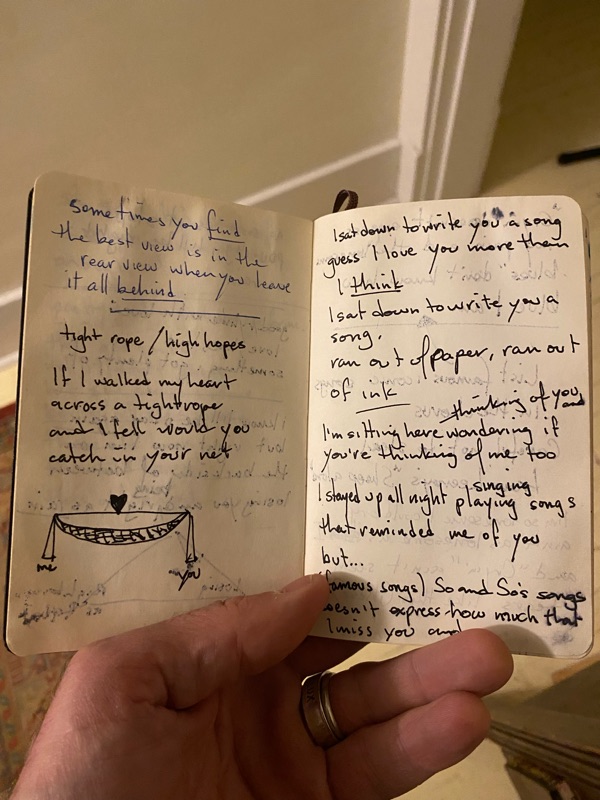 sometimes you find
the best view is in the
rear view when you leave
it all behind
tight rope / high hopes
If I walked my heart
across a tightrope
and I fell would you
catch in your net
me
you
I sat down to write you a song
guess I love you more than
I think
I sat down to write you a
song.
ran out of paper, ran out
of ink
thinking of you and
I'm sitting here wondering if
you're thinking of me too
singing
I stayed up all night playing songs
that reminded me of you
but...
(famous songs) So and So's songs
doesn't express how much that
I miss you and